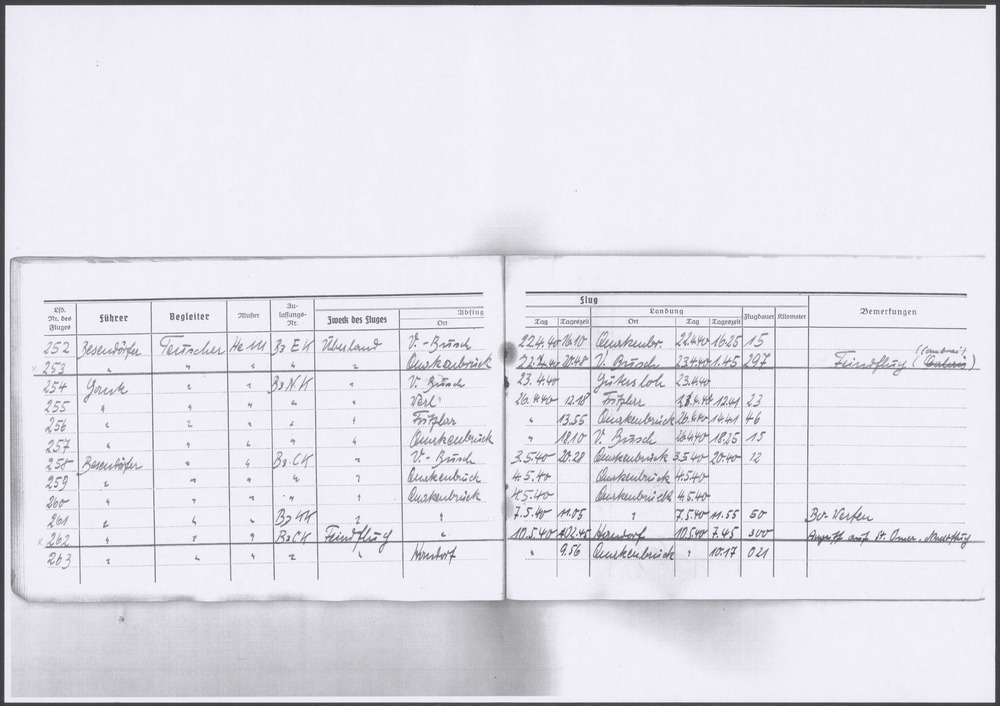 Lfd. Nr. des Fluges Führer Begleiter Muster Zu-lassungs-Nr. Zweck des Fluges Abflug Ort Flug Tag Tageszeit Landung Ort Tag Tageszeit Flugdauer Kilometer Bemerkungen
252 Besendörfer Teuscher He 111 B3 EK Überland V.-Busch 22.4.40 16.10 Quakenbr. 22.4.40 16.25 15
x 253 " " " " " Quakenbrück 22.4.40 20.48 V. Busch 23.4.40 1.45 297 Feindflug
254 Gank " " B3 NK " V. Busch 23.4.40 Gütersloh 23.4.40
255 " " " " " Verl 26.4.40 12.18 Fritzlar 12.41 23
256 " " " " " Fritzlar " 13.55 Quakenbrück 26.4.40 14.41 46
257 " " " " " Quakenbrück " 18.10 V. Busch 26.4.40 18.25 15
258 Besendöfer " " B3.CK " V.-Busch 3.5.40 20.28 Quakenbrück 3.5.40 20.40 12
259 " " " " " Quakenbrück 4.5.40 Quakenbrück 4.5.40
260 " " " " " Quakenbrück 4.5.40 Quakenbrück 4.5.40
261 " " " B3 KK " " 7.5.40 11.05 " 7.5.40 11.55 50
x 262 " " " B3 CK Feindflug " 10.5.40 02.45 Handorf 10.5.40 7.45 300 Angriff auf St. Omer.
263 " " " " " Handorf " 9.56 Quakenbrück " 10.17 021